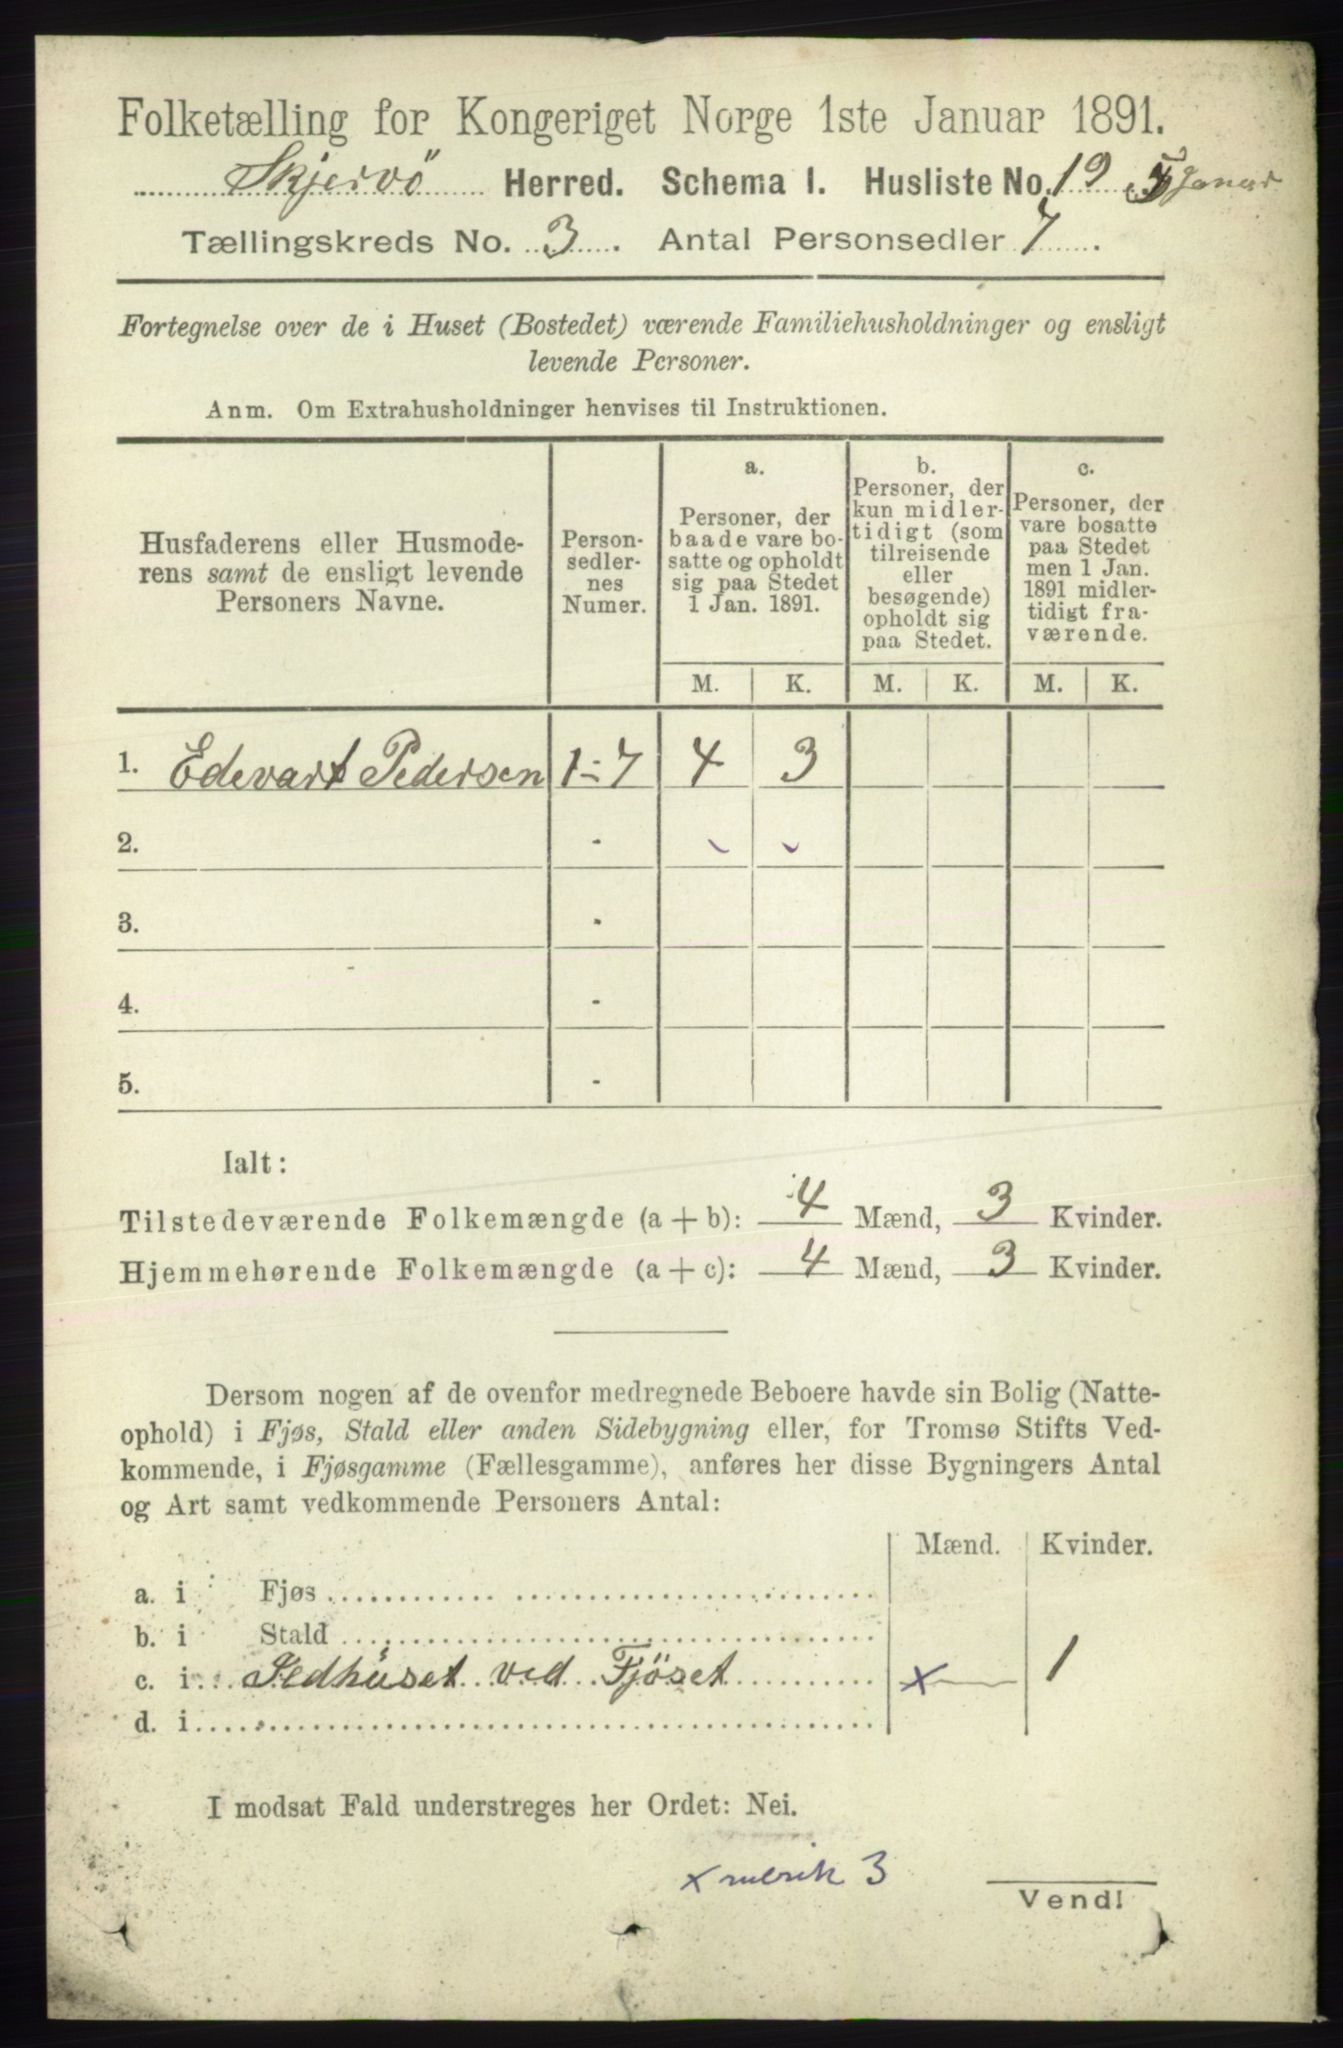 Folketælling for Kongeriget Norge 1ste Januar 1891.
Skjervö Herred. Schema I. Husliste No. 19 Januar
Tællingskreds No. 3. Antal Personsedler 7.
Fortegnelse over de i Huset (Bostedet) værende Familiehusholdninger og ensligt
levende Personer.
Anm. Om Extrahusholdninger henvises til Instruktionen.
Husfaderens eller Husmode-
rens samt de ensligt levende
Personers Navne.
Person-
sedler-
nes
Numer.
a.
Personer, der
baade vare bo-
satte og opholdt
sig paa Stedet
1 Jan. 1891.
b.
Personer, der
kun midler-
tidigt (som
tilreisende
eller
besøgende)
opholdt sig
paa Stedet.
c.
Personer, der
vare bosatte
paa Stedet
men 1 Jan.
1891 midler-
tidigt fra-
værende.
M. K. M. K. M. K.
1. Edevart Pedersen 1-7 4 3
2. -
3. -
4. -
5. -
Ialt:
Tilstedeværende Folkemængde (a + b): 4 Mænd, 3 Kvinder.
Hjemmehørende Folkemængde (a + c): 4 Mænd, 3 Kvinder.
Dersom nogen af de ovenfor medregnede Beboere havde sin Bolig (Natte-
ophold) i Fjøs, Stald eller anden Sidebygning eller, for Tromsø Stifts Ved-
kommende, i Fjøsgamme (Fællesgamme), anføres her disse Bygningers Antal
og Art samt vedkommende Personers Antal:
Mænd. Kvinder.
a. i Fjøs
b. i Stald
c. i Ildhuset ved Fjöset x 1
d. i
I modsat Fald understreges her Ordet: Nei.
x rubrik 3
Vend!